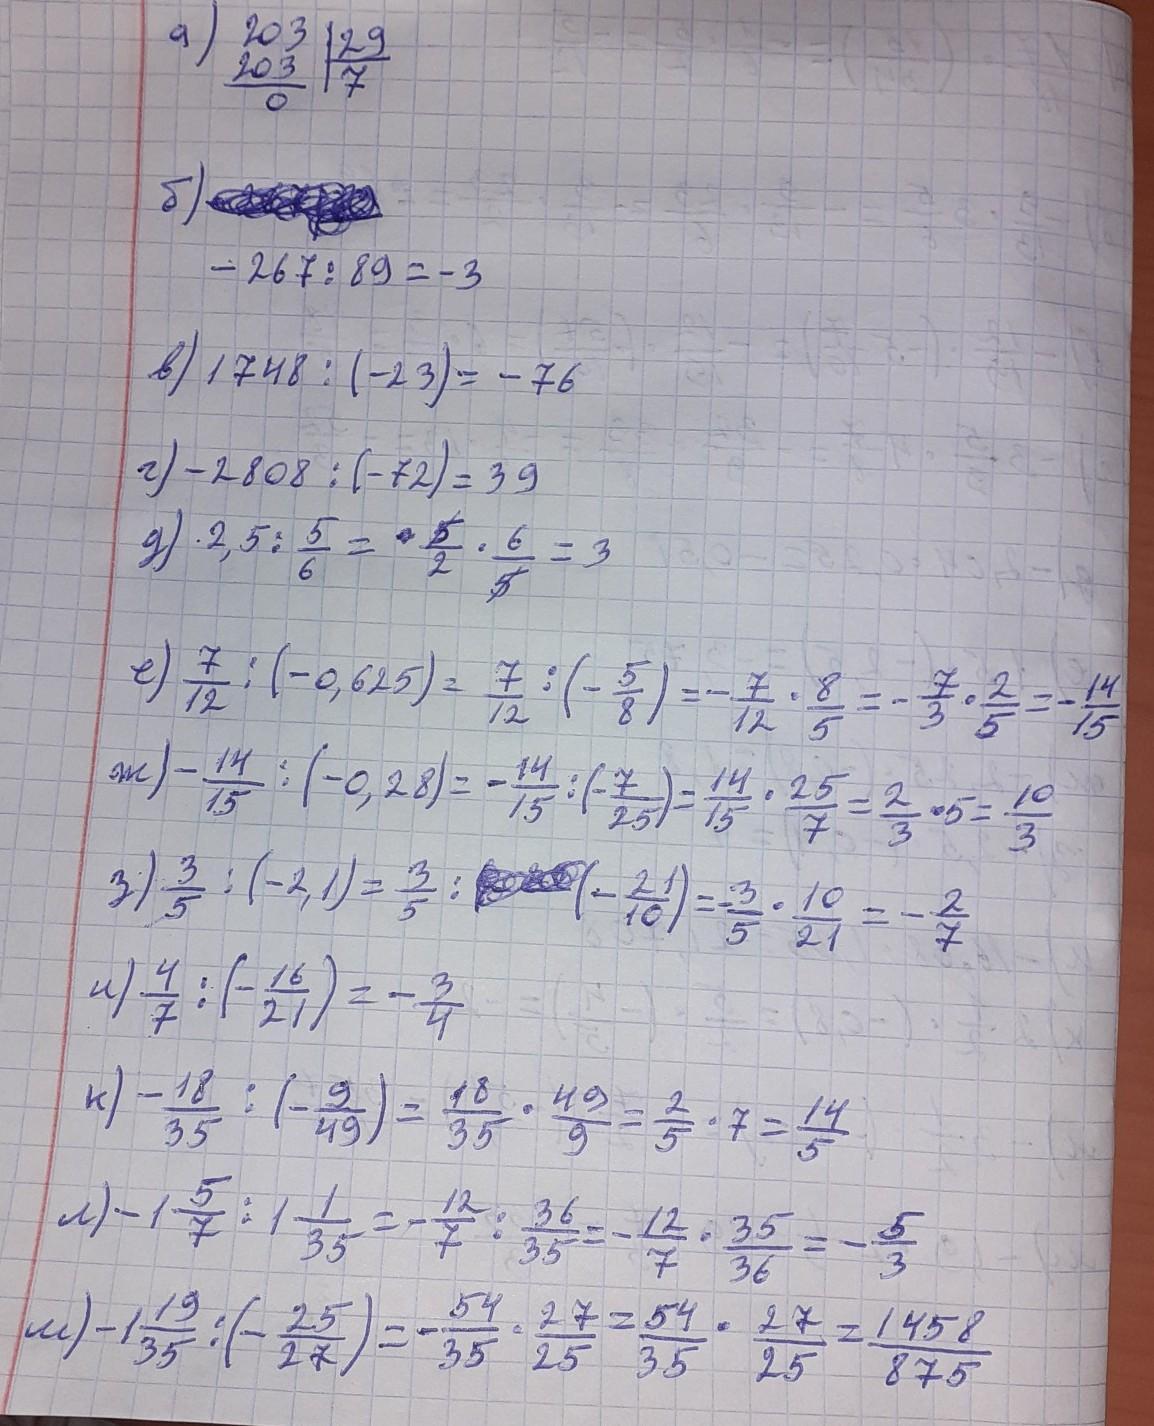 а) 203 | 29
203 | 7
0
б)
- 267 : 89 = -3
в) 1748 : (-23) = -76
г) -2808 : (-72) = 39
д) 2,5 : 5/6 = 5/2 · 6/5 = 3
е) 7/12 : (-0,625) = 7/12 : (-5/8) = -7/12 · 8/5 = -7/3 · 2/5 = -14/15
ж) -14/15 : (-0,28) = -14/15 : (-7/25) = 14/15 · 25/7 = 2/3 · 5 = 10/3
з) 3/5 : (-2,1) = 3/5 : (-21/10) = -3/5 · 10/21 = -2/7
и) 4/7 : (-16/21) = -3/4
к) -18/35 : (-9/49) = 18/35 · 49/9 = 2/5 · 7 = 14/5
л) -1 5/7 : 1 1/35 = -12/7 : 36/35 = -12/7 · 35/36 = -5/3
м) -1 19/35 : (-25/27) = -54/35 · 27/25 = 54/35 · 27/25 = 1458/875